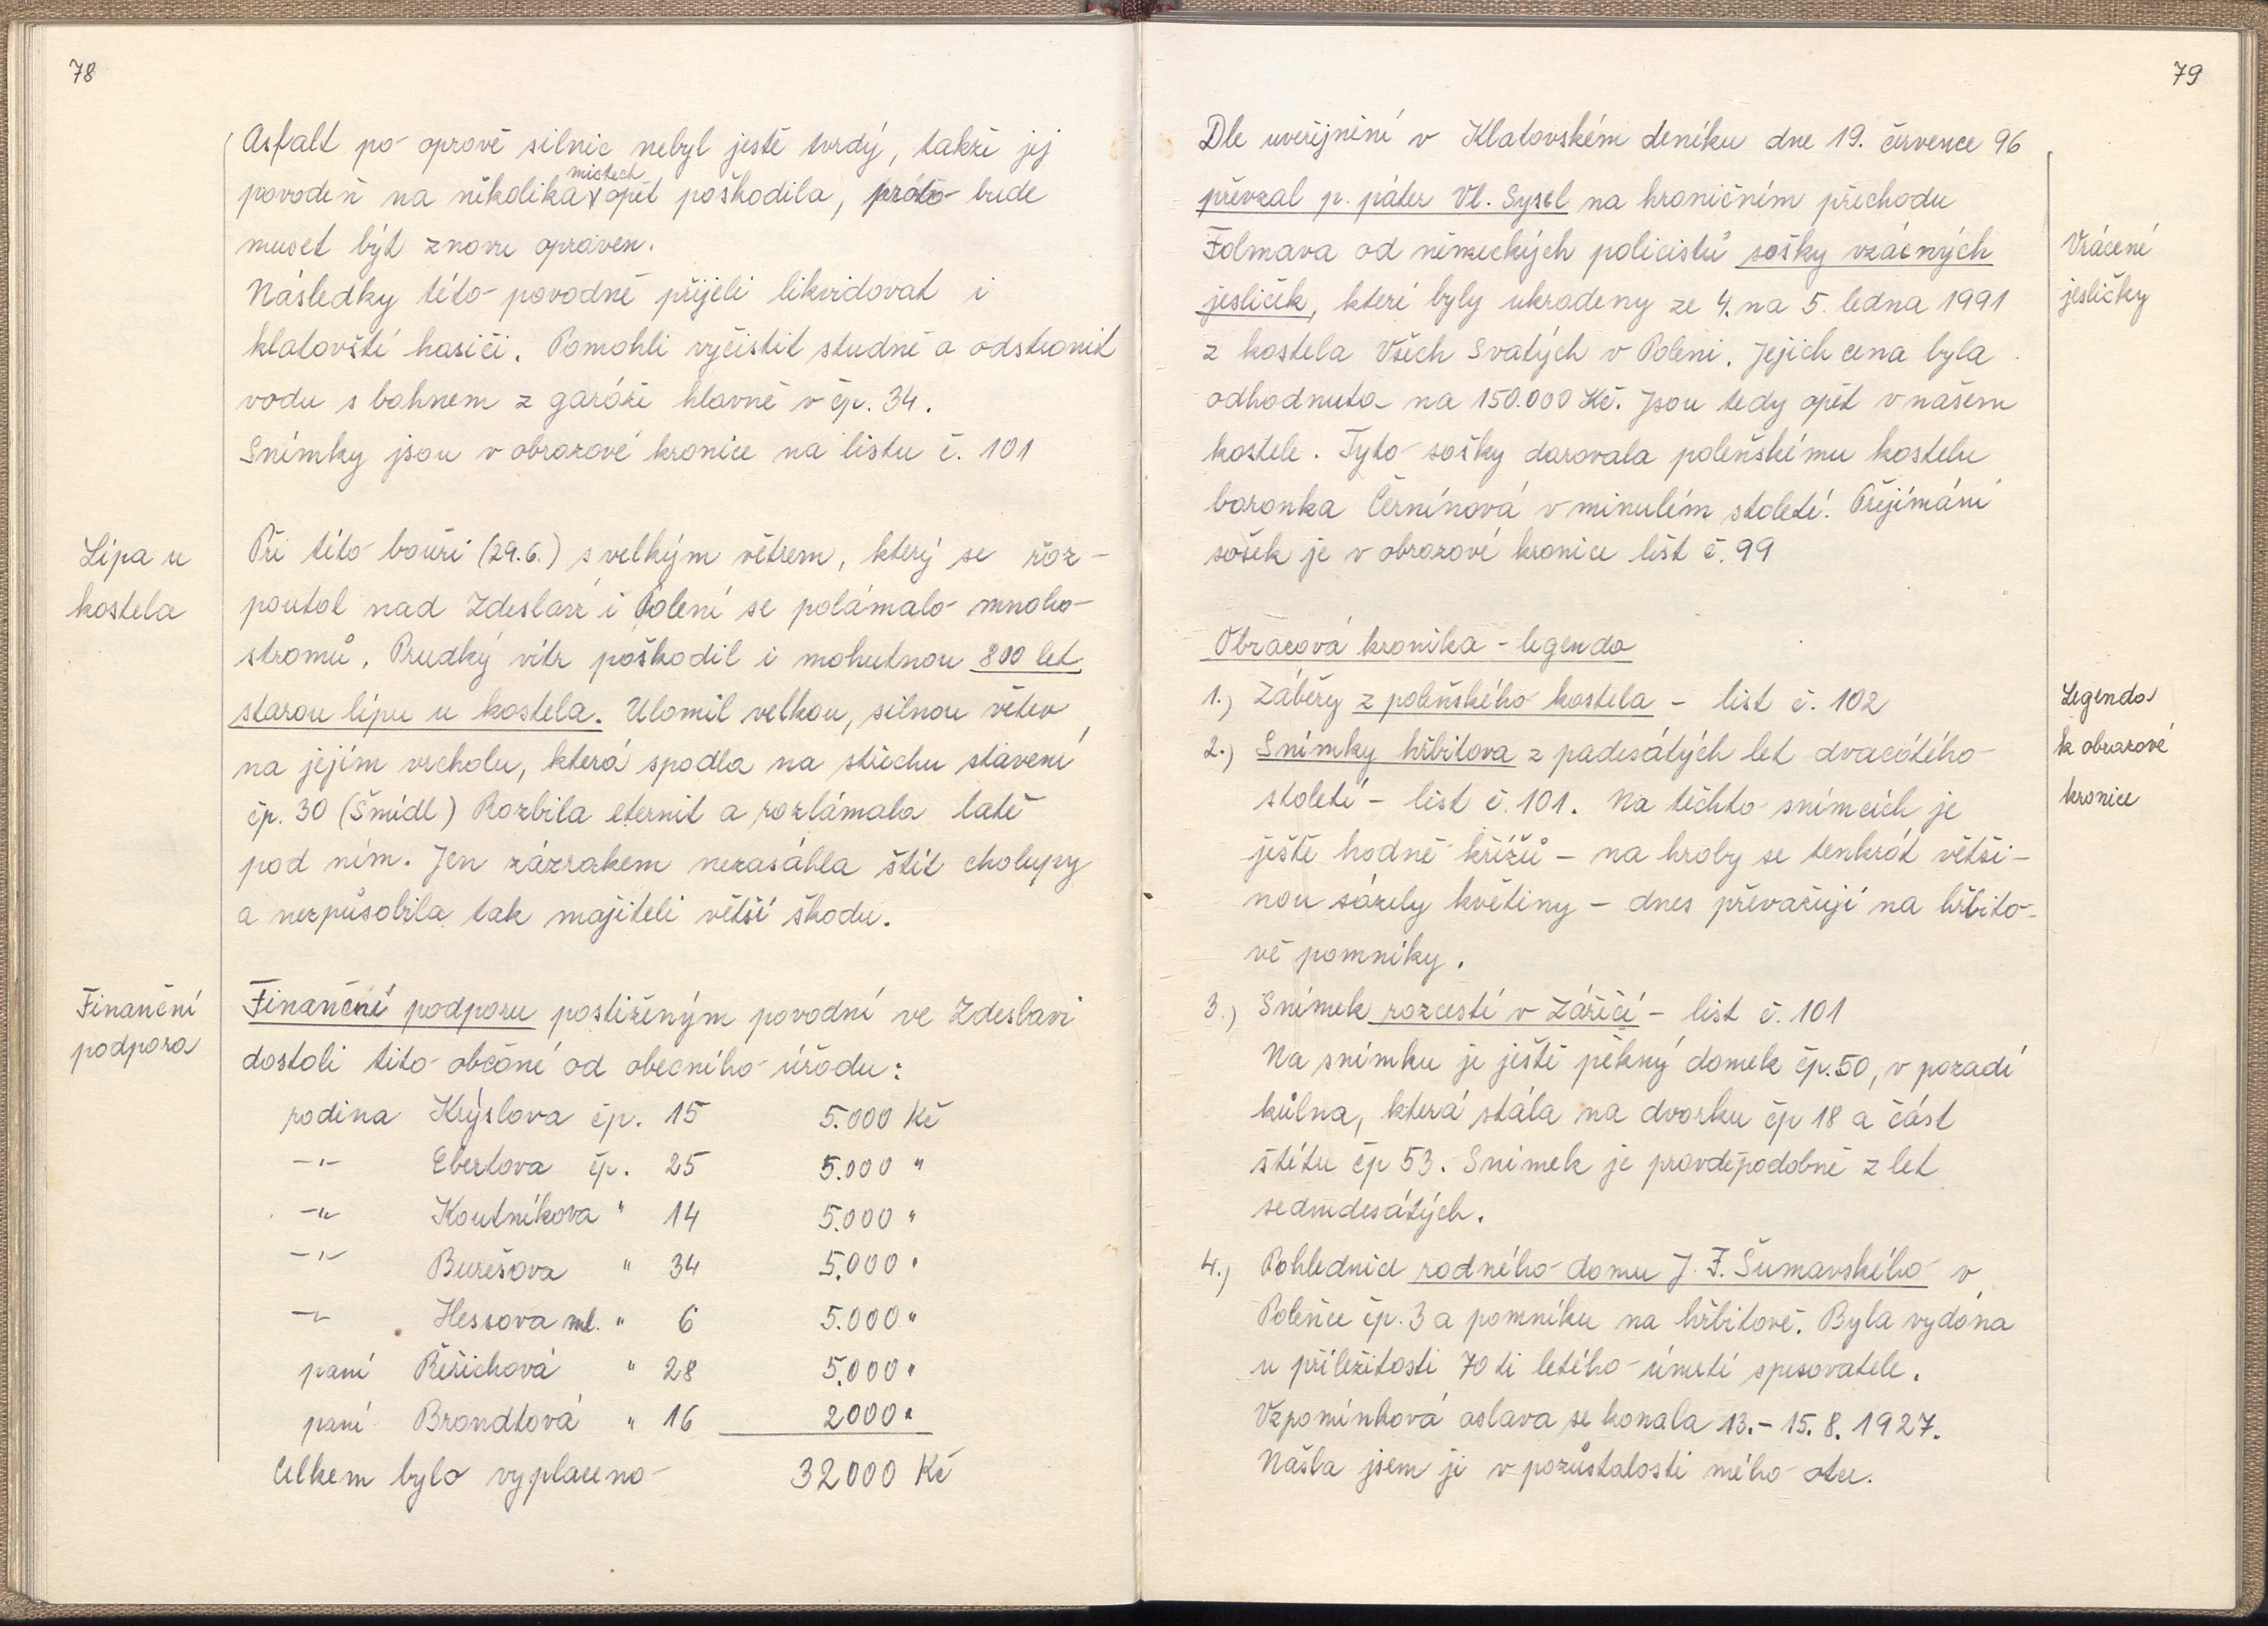 78
Asfalt po opravě silnic nebyl ještě tvrdý, takže jej
povodeň na několika místech opět poškodila, proto bude
muset být znovu opraven.
Následky této povodně přijeli likvidovat i
klatovští hasiči. Pomohli vyčistit studně a odstranit
vodu s bahnem z garáže hlavně v čp. 34.
Snímky jsou v obrazové kronice na listu č. 101
Lípa u
kostela
Při této bouři (29.6.) s velkým větrem, který se roz-
poutal nad Zdeslaví i Polení se polámalo mnoho
stromů. Prudký vítr poškodil i mohutnou 800 let
starou lípu u kostela. Ulomil velkou, silnou větev
na jejím vrcholu, která spadla na střechu stavení
čp. 30 (Šmídl) Rozbila eternit a rozlámala latě
pod ním. Jen zázrakem nezasáhla štít chalupy
a nezpůsobila tak majiteli větší škodu.
Finanční
podpora
Finanční podporu postiženým povodní ve Zdeslavi
dostali tito občané od obecního úřadu:
rodina Krýslova čp. 15 5.000 Kč
-"- Ebertova čp. 25 5.000 "
-"- Koutníkova " 14 5.000 "
-"- Burešova " 34 5.000 "
-"- Hessova ml. " 6 5.000 "
paní Řeřichová " 28 5.000 "
paní Brandtová " 16 2000 "
Celkem bylo vyplaceno 32000 Kč
79
Dle uveřejnění v Klatovském deníku dne 19. července 96
převzal p. páter Vl. Sysel na hraničním přechodu
Folmava od německých policistů sošky vzácných
jesliček, které byly ukradeny ze 4. na 5. ledna 1991
z kostela Všech Svatých v Poleni. Jejich cena byla
odhadnuta na 150.000 Kč. Jsou tedy opět v našem
kostele. Tyto sošky darovala poleňskému kostelu
baronka Černínová v minulém století. Přejímání
sošek je v obrazové kronice list č. 99
Vrácené
jesličky
Obrazová kronika - legenda
1.) Záběry z poleňského kostela - list č. 102
2.) Snímky hřbitova z padesátých let dvacátého
století - list č. 101. Na těchto snímcích je
ještě hodně křížů - na hroby se tenkrát větši-
nou sázely květiny - dnes převažují na hřbito-
vě pomníky.
Legenda
k obrazové
kronice
3.) Snímek rozcestí v Zářečí - list č. 101
Na snímku je ještě pěkný domek čp. 50, v pozadí
kůlna, která stála na dvorku čp 18 a část
štítu čp 53. Snímek je pravděpodobně z let
sedmdesátých.
4.) Pohlednice rodného domu J. F. Šumavského v
Polence čp. 3 a pomníku na hřbitově. Byla vydána
u příležitosti 70 ti letého úmrtí spisovatele.
Vzpomínková oslava se konala 13.- 15. 8. 1927.
Našla jsem ji v pozůstalosti mého otce.